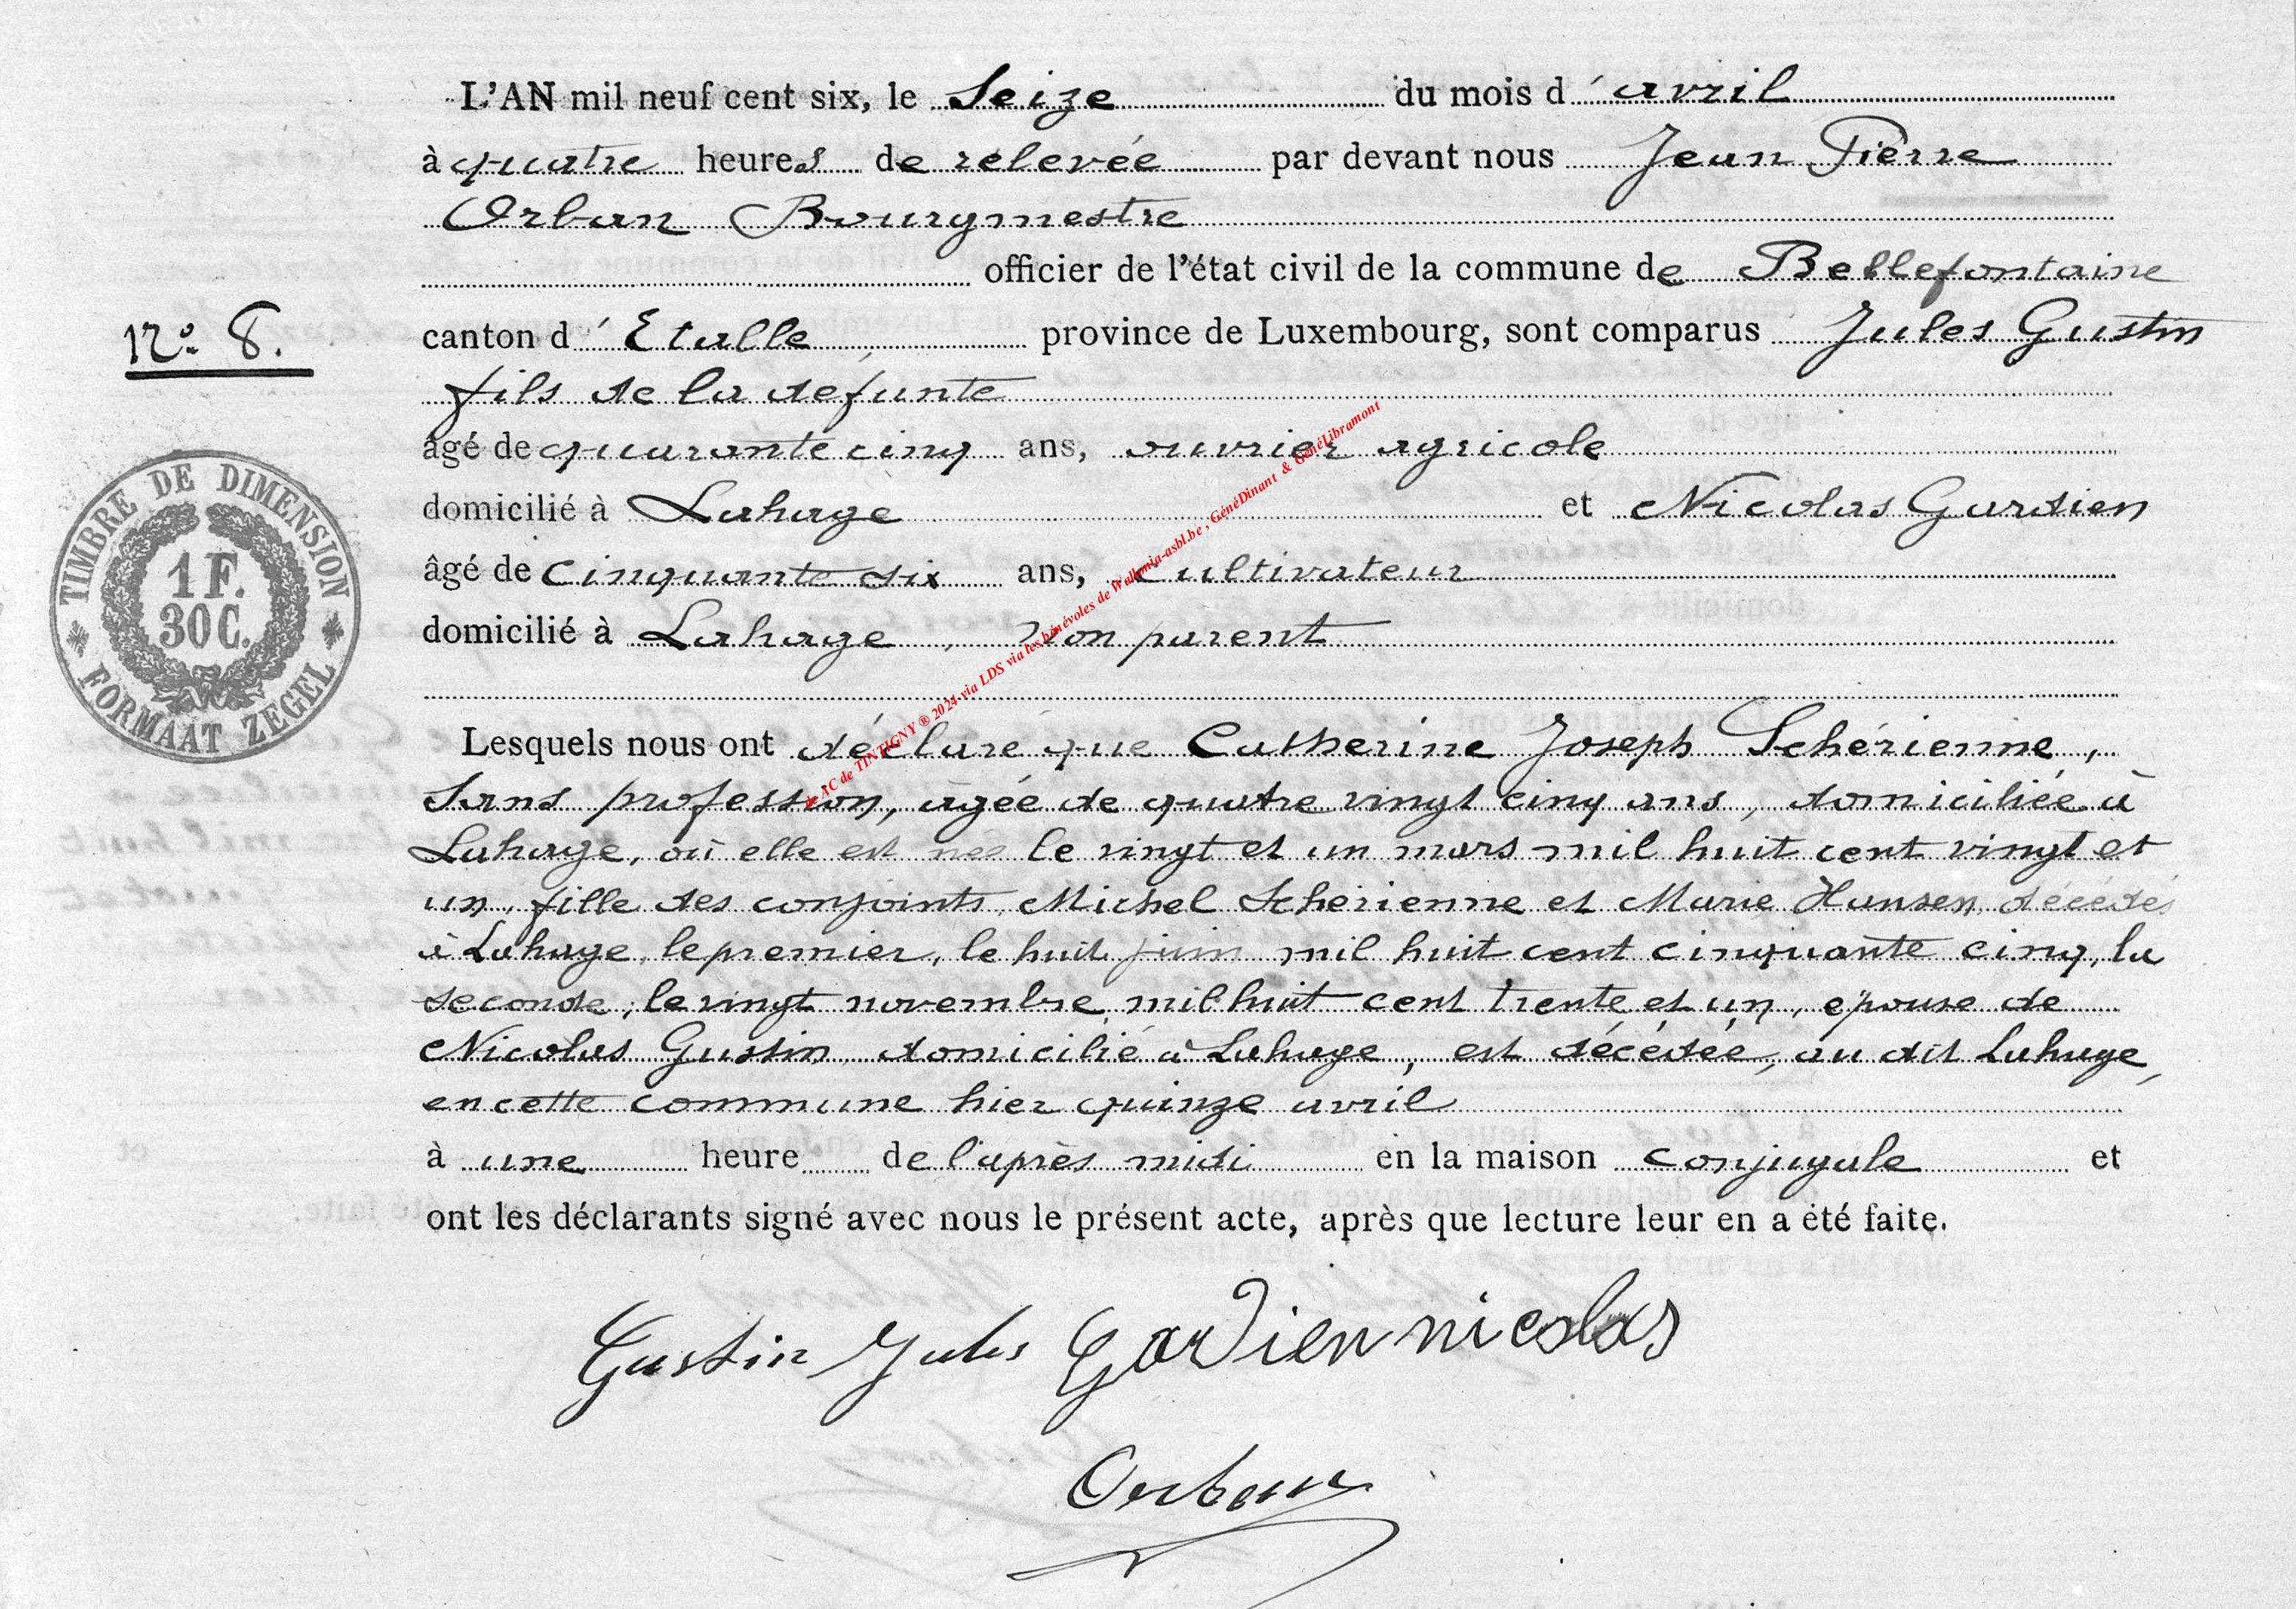 L'AN mil neuf cent six, le Seize du mois d'avril
à quatre heures de relevée par devant nous Jean Pierre
Orban Bourgmestre
officier de l'état civil de la commune de Bellefontaine
N° 8.
canton d'Etalle, province de Luxembourg, sont comparus Jules Gustin
fils de la defunte
âgé de quarante cinq ans, ouvrier agricole
domicilié à Lahage et Nicolas Gardien
âgé de cinquante six ans, cultivateur
domicilié à Lahage, non parent
TIMBRE DE DIMENSION
1 F.
30 C.
FORMAAT ZEGEL
Lesquels nous ont déclaré que Catherine Joseph Schérienne,
Sans profession, âgée de quatre vingt cinq ans, domiciliée à
Lahage, où elle est née le vingt et un mars mil huit cent vingt et
un, fille des conjoints Michel Schérienne et Marie Hansen, décédés
à Lahage, le premier, le huit juin mil huit cent cinquante cinq, la
seconde, le vingt novembre mil huit cent trente et un, épouse de
Nicolas Gustin domicilié à Lahage, est décédée, au dit Lahage,
en cette commune hier quinze avril
à une heure de l'après midi en la maison conjugale et
ont les déclarants signé avec nous le présent acte, après que lecture leur en a été faite.
Gustin Jules Gardien nicolas
Orban
AC de TINTIGNY ® 2024 via LDS via les bénévoles de Wallonia-asbl.be ; GénéDinant & GénéLibramont